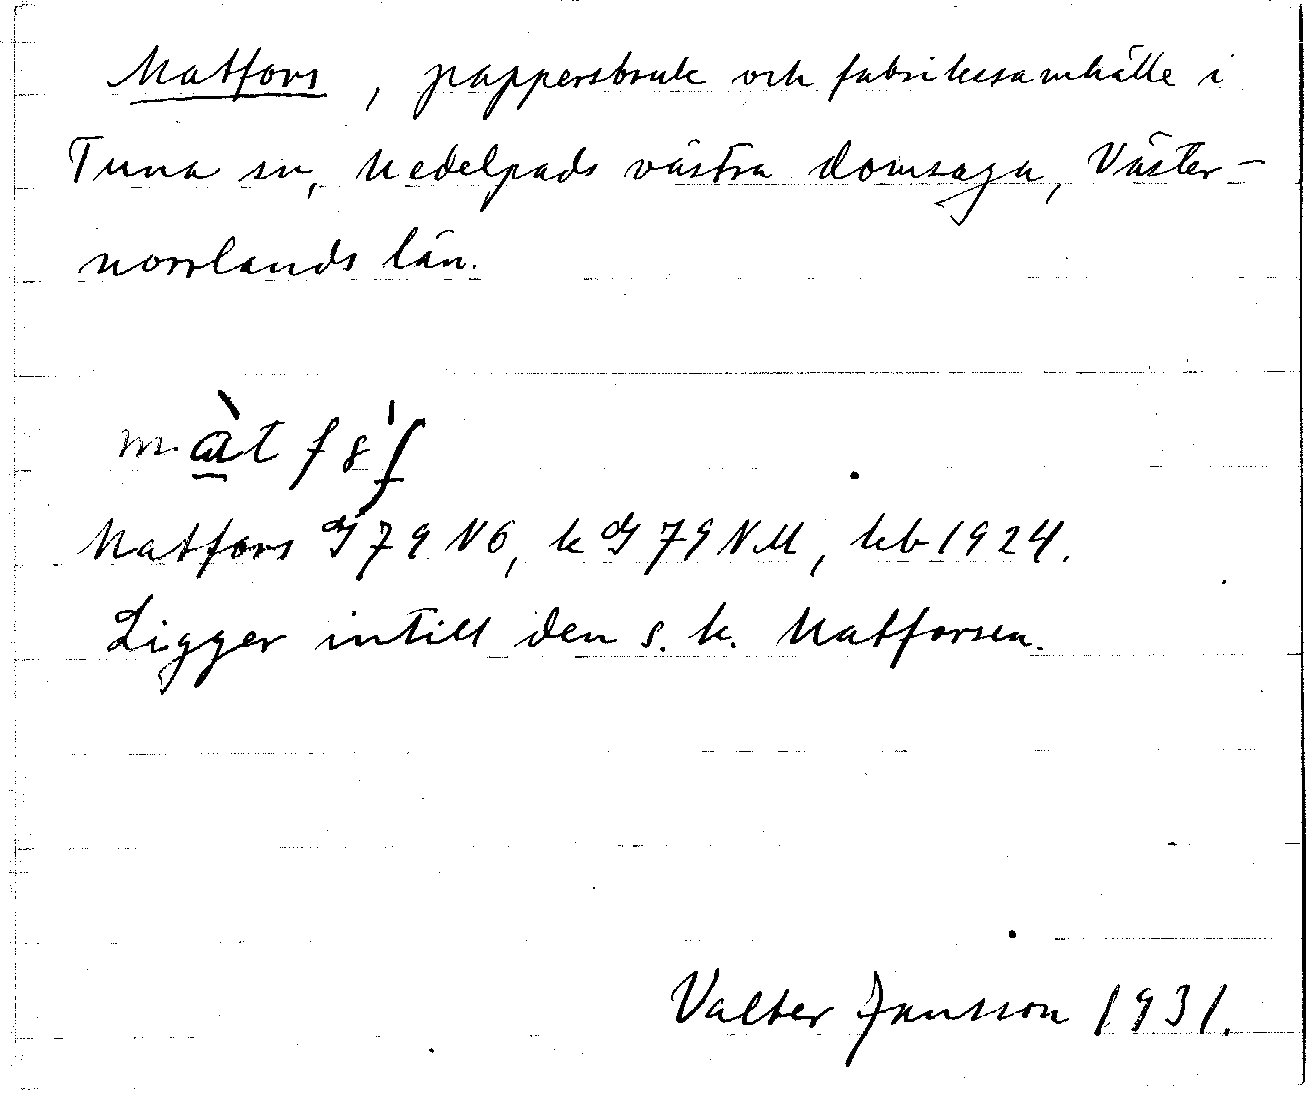 Matfors, pappersbruk och fabrikssamhälle i
Tuna sn, Medelpads västra domsaga, Väster-
norrlands län.
Matfors G 79 NÖ, k G 79 NM, kb 1924.
Ligger intill den s. k. Matforsen.
Valter Jansson 1931.